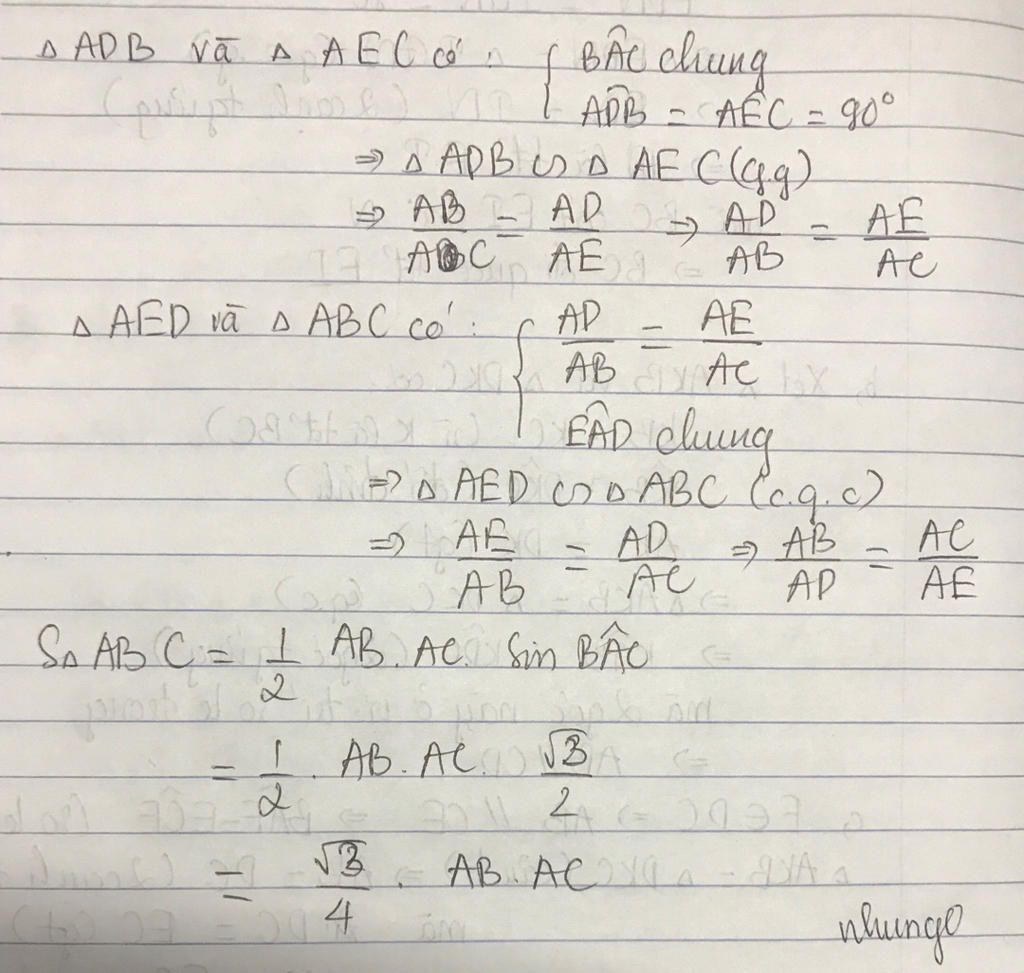 △ ADB vã △ AEC có : { BÂC chung
ADB̂ = AÊC = 90°
⇒ △ ADB ∽ △ AEC (g.g)
⇒ AB/AC = AD/AE ⇒ AD/AB = AE/AC
△ AED vã △ ABC có : { AD/AB = AE/AC
EÂD chung
⇒ △ AED ∽ △ ABC (c.g.c)
⇒ AE/AB = AD/AC ⇒ AB/AD = AC/AE
S△ ABC = 1/2 AB. AC. Sin BÂC
= 1/2 . AB. AC. √3/2
= √3/4 . AB. AC
nhung0